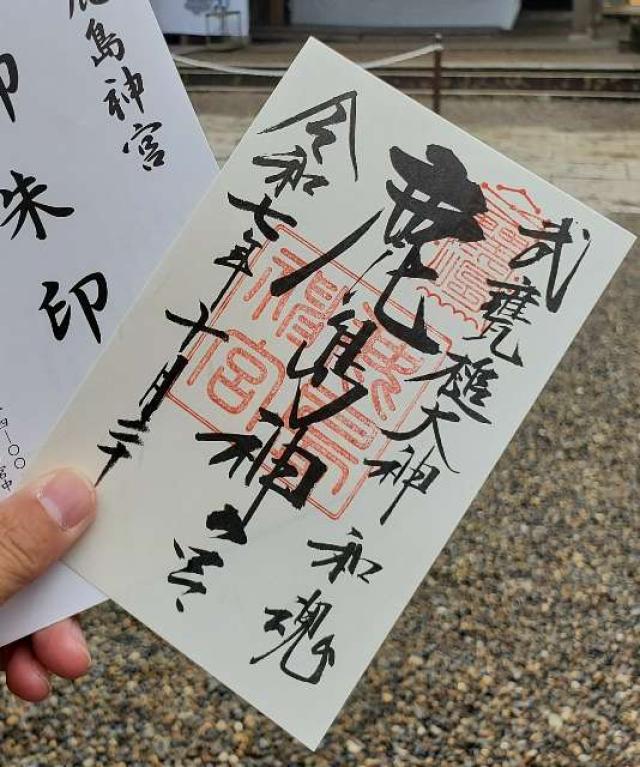 武甕槌大神
和魂
鹿島神宮
令和七年十月二十
鹿島神宮
鹿島神宮
朱印